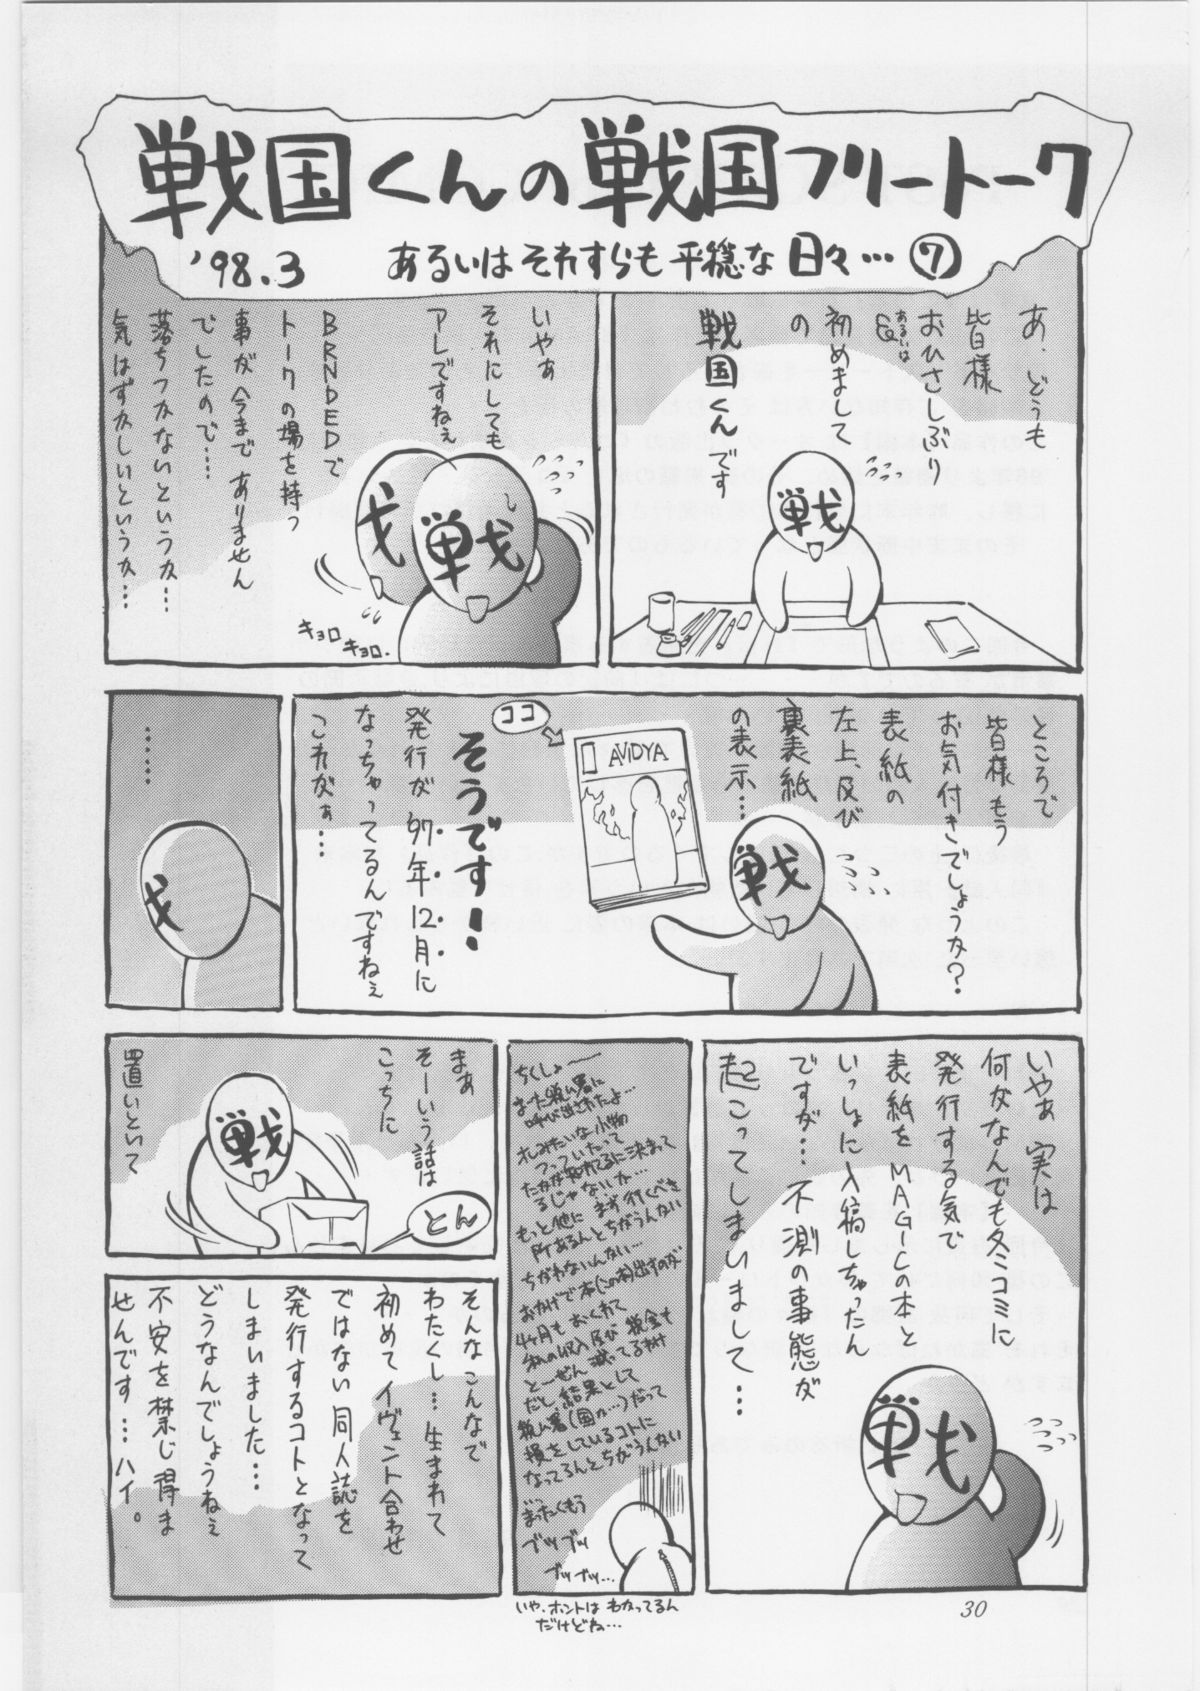 戦国くんの戦国フリートーク
'98.3 あるいはそれすらも平穏な日々…⑦
あ、どうも
皆様
おひさしぶり
&
あるいは
初めまして
の
戦国くんです
いやぁ
それにしても
アレですねぇ
BRNDEDで
トークの場を持つ
事が今まであリません
でしたので……
落ちつかないというか…
気はずかしいというか…
キョロ
キョロ。
ところで
皆様もう
お気付きでしょうか?
表紙の
左上、及び
裏表紙
の表示…
ココ
AVIDYA
そうです!
発行が'97年12月に
なっちゃってるんですねぇ
これがぁ…
……
いやぁ実は
何がなんでも冬コミに
発行する気で
表紙をMAGICの本と
いっしょに入稿しちゃったん
ですが…不測の事態が
起こってしまいまして…
ちくしょーー
また税ム署に
呼び出されたよ…
オレみたいな小物
つっついたって
たかが知れてるに決まって
るじゃないか…
もっと他にまず行くべき
所あるんとちがうんない
ちがわないんない…
おかげで本(この本)出すのが
4ヶ月もおくれて
私の収入及び税金も
とーぜん減ってるわけ
だし、結果として
税ム署(国か…)だって
損をしているコトに
なってるんとちがうんない
まったくもう
ブツブツ
ブツブツ…
いや、ホントはわかってるん
だけどね…
まあ
そーいう話は
こっちに
置いといて
とん
そんなこんなで
わたくし…生まれて
初めてイヴェント合わせ
ではない同人誌を
発行するコトとなって
しまいました…
どうなんでしょうねぇ
不安を禁じ得ま
せんです…ハイ。
30